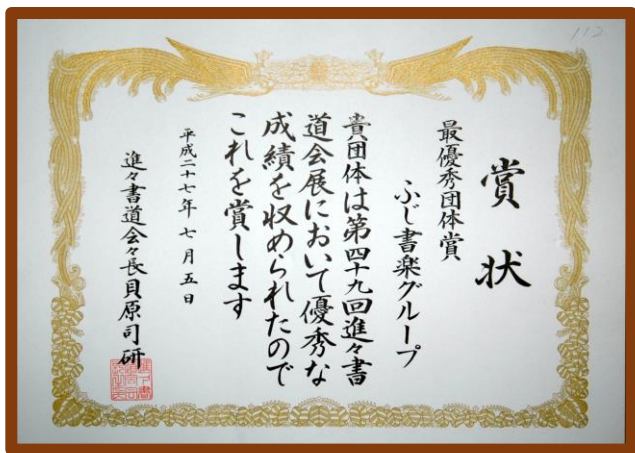 賞状
最優秀団体賞
ふじ書楽グループ
貴団体は第四十九回進々書
道会展において優秀な
成績を収められたので
これを賞します
平成二十七年七月五日
進々書道会々長貝原司研
112